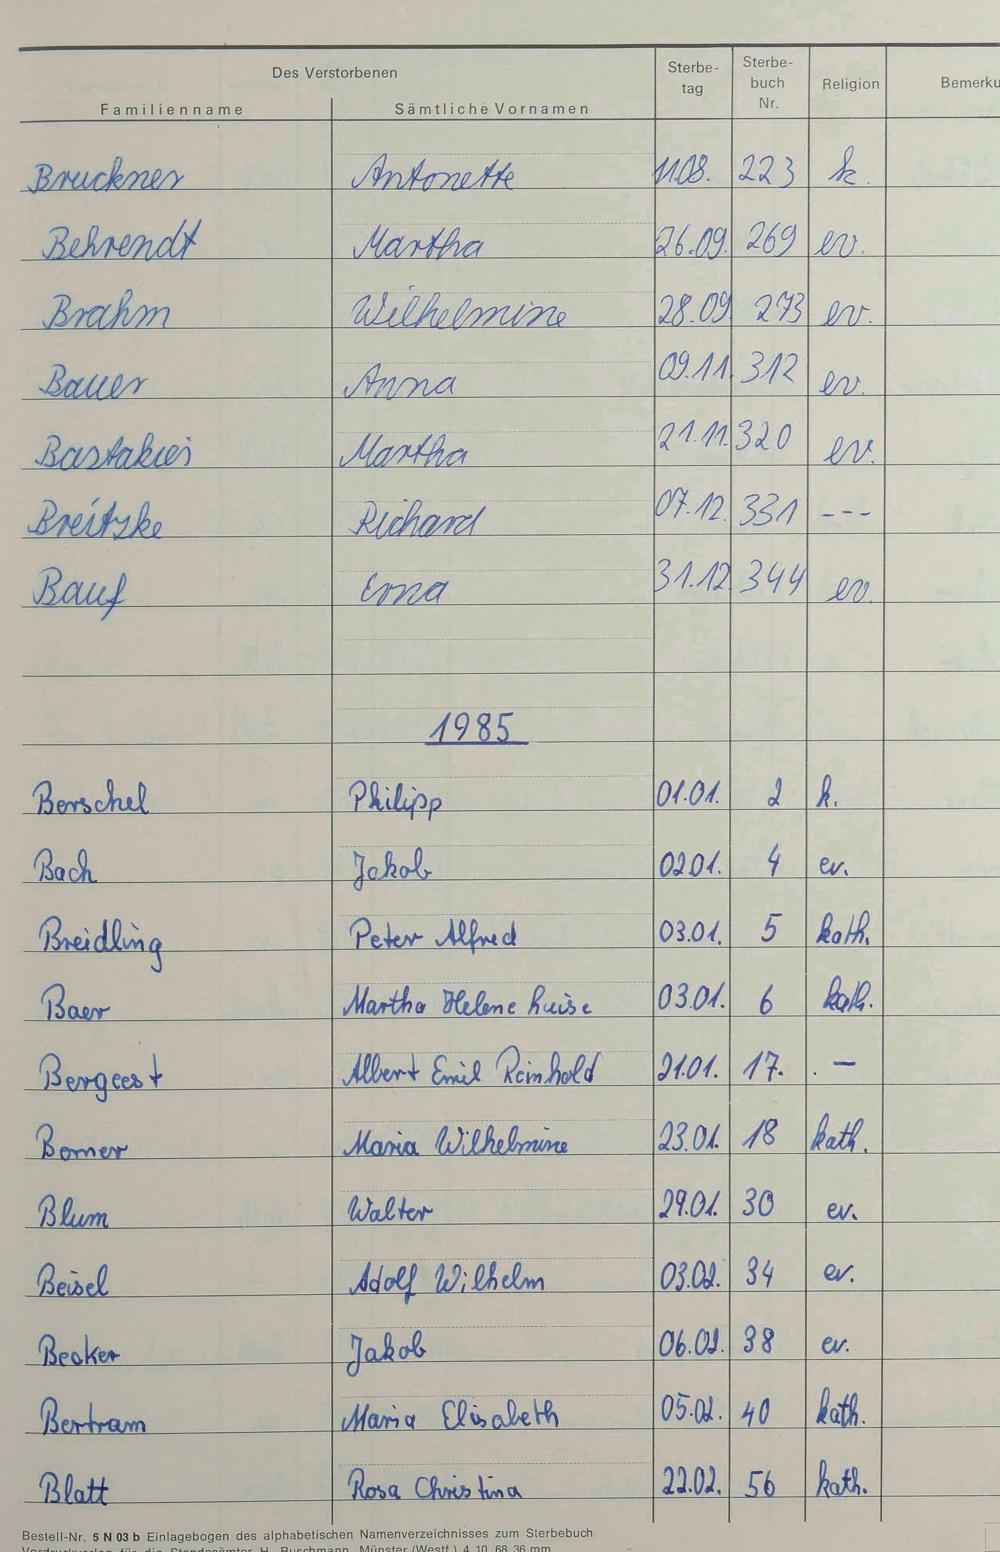 Des Verstorbenen Sterbe- Sterbe-
tag buch Religion Bemerku
Familienname Sämtliche Vornamen Nr.
Bruckner Antonette 11.08. 223 k.
Behrendt Martha 26.09. 269 ev.
Brahm Wilhelmine 28.09 273 ev.
Bauer Anna 09.11. 312 ev.
Martha 21.11. 320 ev.
Breitzke Richard 07.12. 331 ---
Bauf Erna 31.12 344 ev.
1985
Berschel Philipp 01.01. 2 k.
Bach Jakob 02.01. 4 ev.
Breidling Peter Alfred 03.01. 5 kath.
Baer Martha Helene Luise 03.01. 6 kath.
Bergeest Albert Emil Reinhold 21.01. 17. . —
Bomer Maria Wilhelmine 23.01. 18 kath.
Blum Walter 29.01. 30 ev.
Beisel Adolf Wilhelm 03.02. 34 ev.
Becker Jakob 06.02. 38 ev.
Bertram Maria Elisabeth 05.02. 40 kath.
Blatt Rosa Christina 22.02. 56 kath.
Bestell-Nr. 5 N 03 b Einlagebogen des alphabetischen Namenverzeichnisses zum Sterbebuch
Vordruckverlag für die Standesämter H. Buschmann, Münster (Westf.) 4. 10. 68. 36 mm